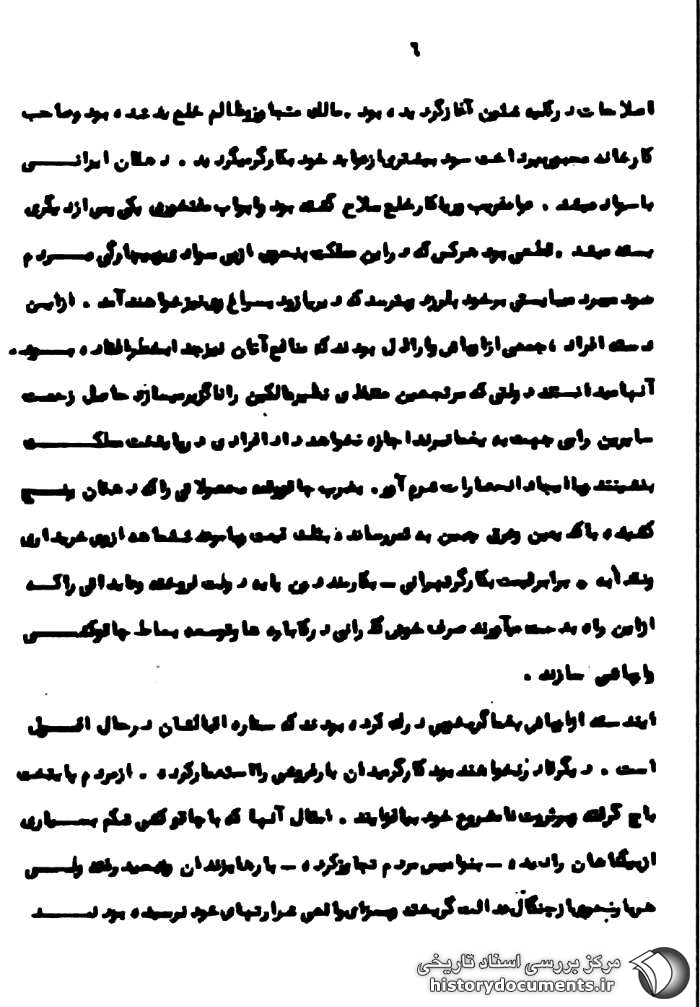 ٦
اصلاحات در کلیه شئون آغاز گردیده بود . مالک متجاوز و ظالم خلع ید شده بود و صاحب
کارخانه مجبور بپرداخت سود بیشتری از عواید خود بکارگر میگردید . دهقان ایرانی
با سواد میشد . عوامفریب و ریاکار خلع سلاح گشته بود و ابواب یکی پس از دیگری
بسته میشد . قطعی بود هر کس که در این مملکت بنحوی از بی سوادی و بیچارگی مردم
سود میبرد میبایستی بر خود بلرزد و بترسد که دیر یا زود بسراغ وی نیز خواهند آمد . از این
دسته افراد ، جمعی از اوباش و اراذل بودند که منافع آنان نیز جدا بخطر افتاده بود .
آنها میدانستند دولتی که نظیر مالکین را ناگزیر میسازد حاصل زحمت
سایرین را بی جهت به یغما نبرند اجازه نخواهد داد افرادی در پایتخت مملکت
بنشینند و با ایجاد انحصارات شرم آور . بضرب چاقو محصولاتی را که دهقان رنج
کشیده با کد یمین و عرق جبین به ثمر رسانده بثلث قیمت و یا خریداری
و برابر قیمت بکارگر تهرانی - بکارمند دون پایه دولت فروخته و عایداتی را که
از این راه بدست میآورند صرف خوش گذرانی در کاباره ها و توسعه بساط چاقوکشی
و اوباشی سازند .
این دسته اوباش بخوبی درک کرده بودند که ستاره اقبالشان در حال افول
است . دیگر قادر نخواهند بود کارگر میدان بارفروشی را استثمار کرده . از مردم پایتخت
باج گرفته و بر ثروت نامشروع خود بیافزایند . امثال آنها که با چاقوکشی شکم بسیاری
از بیگناهان را دریده - بنوامیس مردم تجاوز کرده - بارها بزندان و تبعید رفته ولی
هر بار بنحوی از چنگال عدالت گریخته و بسزای واقعی شرارتهای خود نرسیده بودند
مرکز بررسی اسناد تاریخی
historydocuments.ir